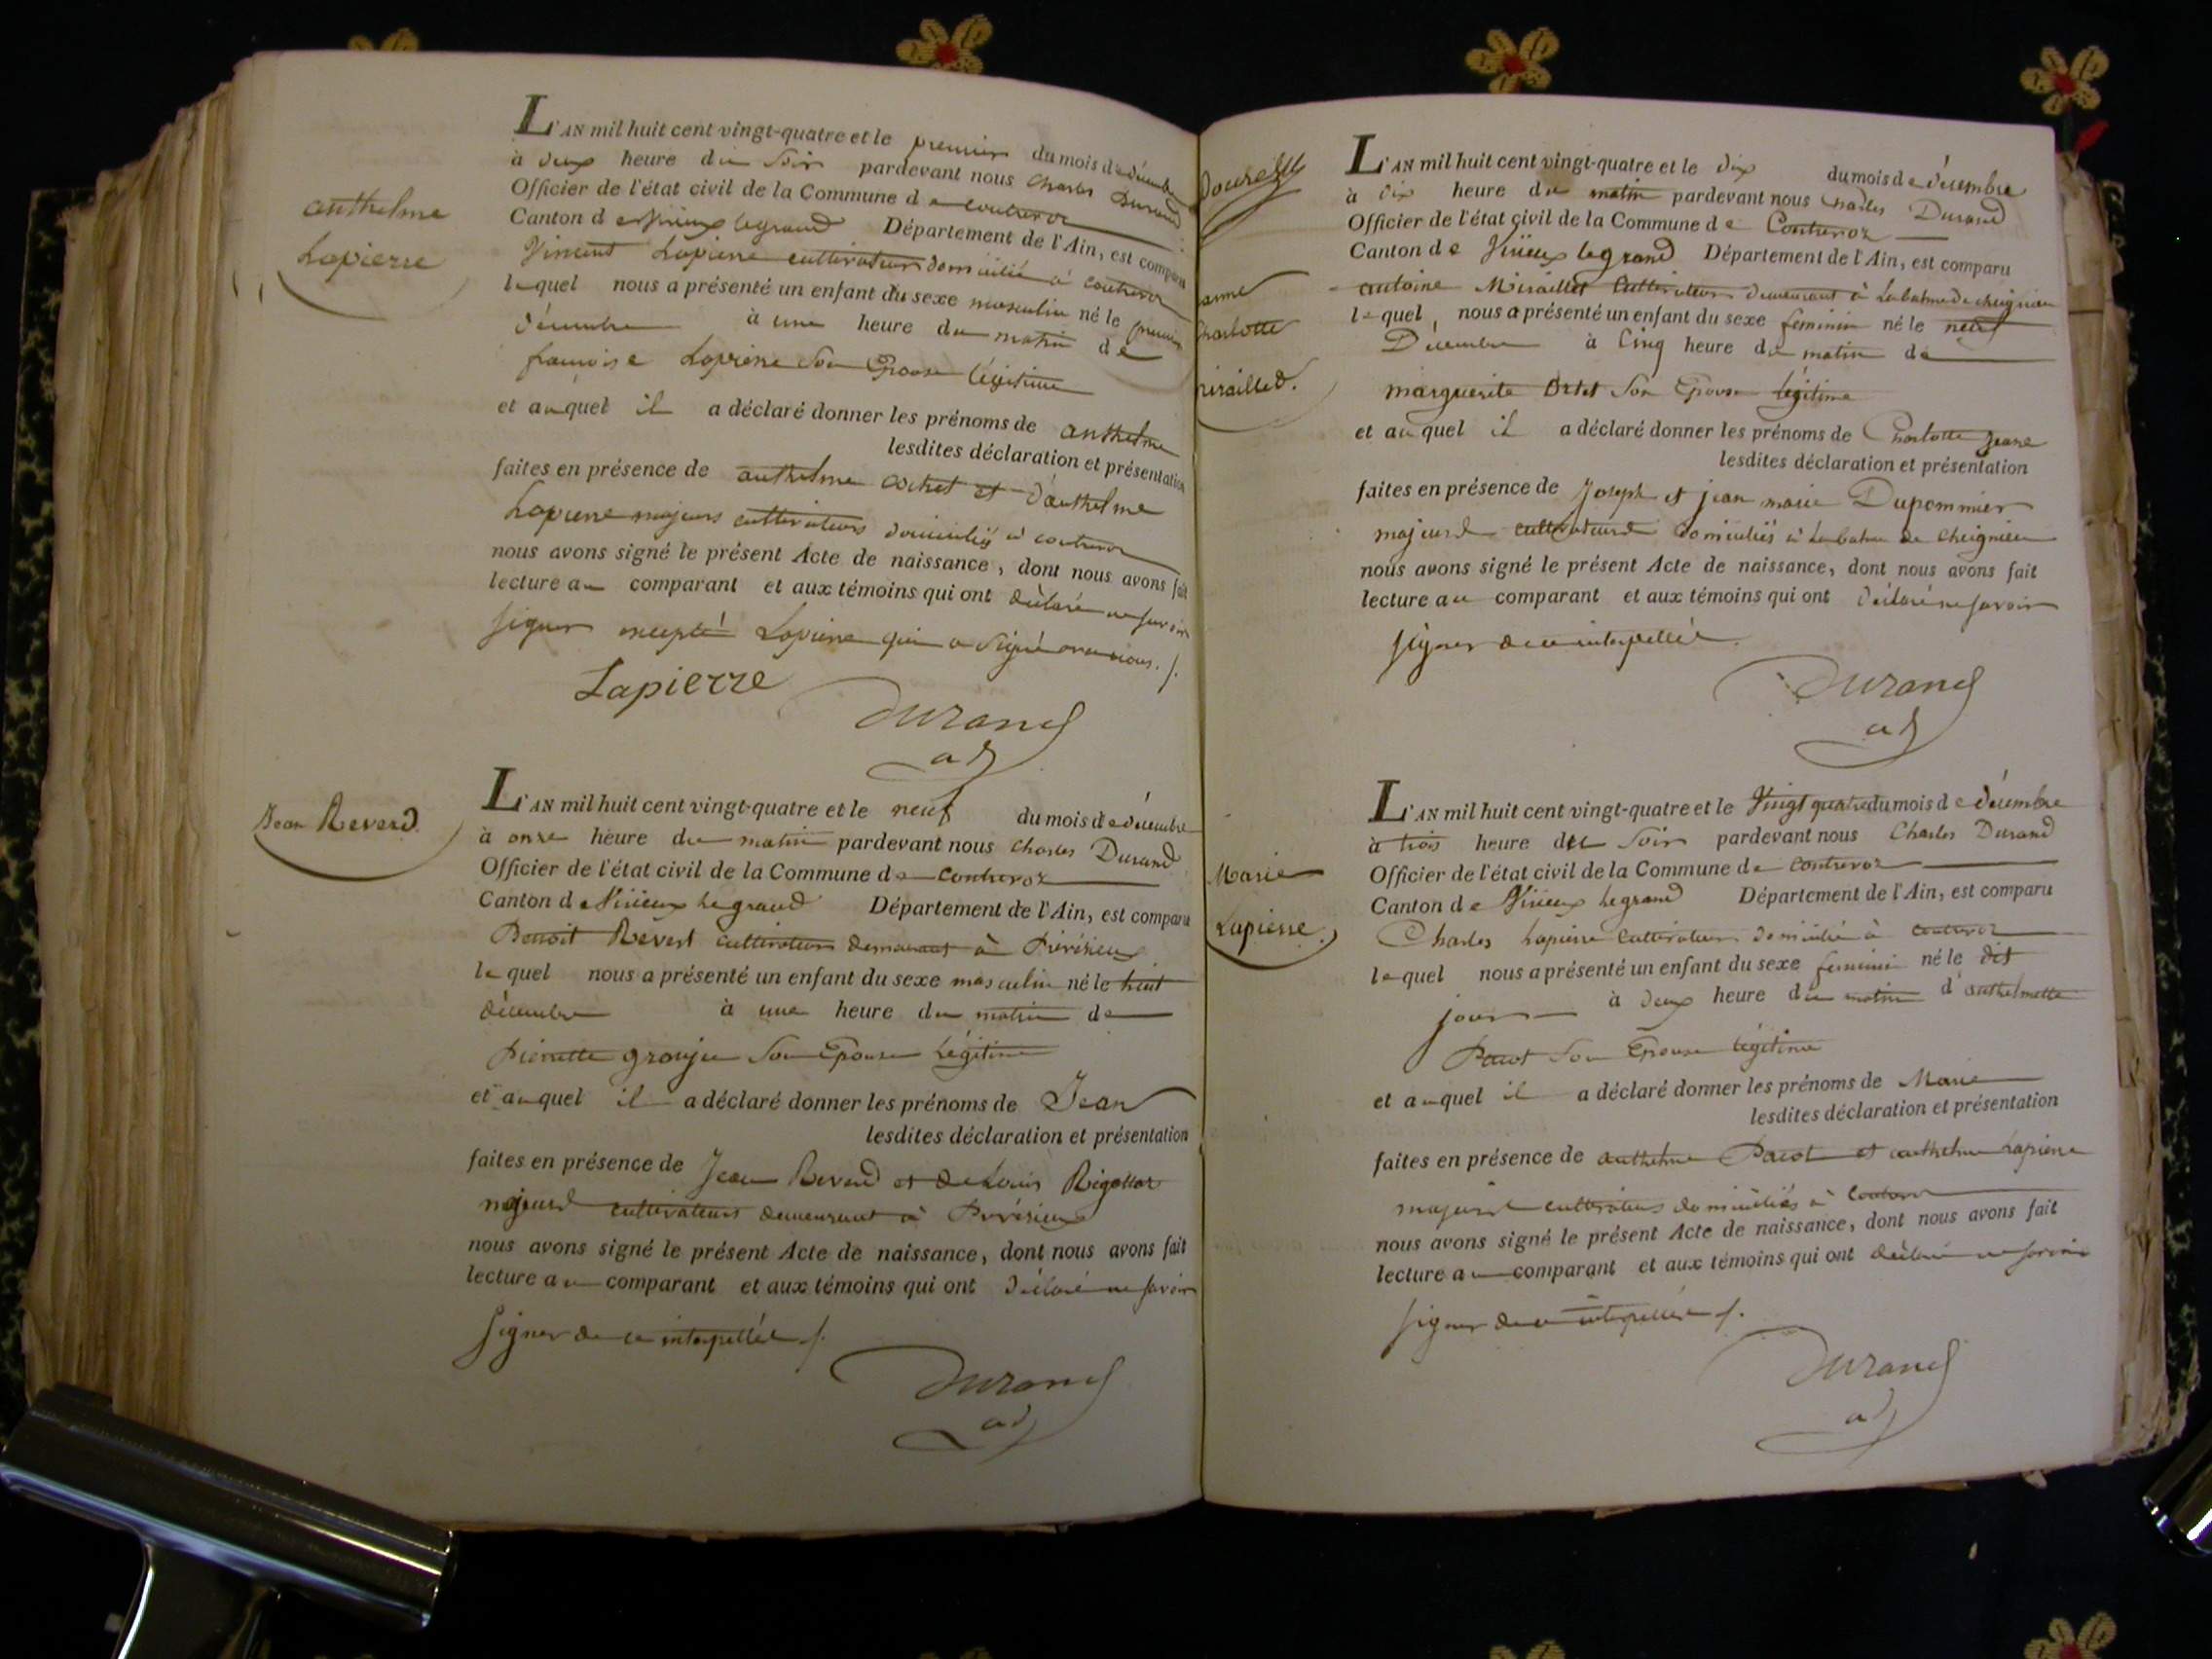 anthelme
Lapierre
L'AN mil huit cent vingt-quatre et le premier du mois de décembre
à deux heure du soir pardevant nous Charles Durand
Officier de l'état civil de la Commune de contrevoz
Canton de Virieux legrand Département de l'Ain, est comparu
Vincent Lapierre cultivateur domicilié à contrevoz
lequel nous a présenté un enfant du sexe masculin né le premier
décembre à une heure du matin de
françoise Lapierre Son Epouse légitime
et auquel il a déclaré donner les prénoms de anthelme
lesdites déclaration et présentation
faites en présence de anthelme et d'anthelme
Lapierre majeurs cultivateurs domiciliés à contrevoz
nous avons signé le présent Acte de naissance, dont nous avons fait
lecture au comparant et aux témoins qui ont déclaré ne savoir
signer excepté Lapierre qui a signé avec nous ./.
Lapierre
Durand
adj
Jean Reverd
L'AN mil huit cent vingt-quatre et le neuf du mois de décembre
à onze heure du matin pardevant nous Charles Durand
Officier de l'état civil de la Commune de contrevoz
Canton de Virieux legrand Département de l'Ain, est comparu
Benoit Reverd cultivateur demeurant à
lequel nous a présenté un enfant du sexe masculin né le huit
décembre à une heure du matin de
Pierrette gronjie Son Epouse Légitime
et auquel il a déclaré donner les prénoms de Jean
lesdites déclaration et présentation
faites en présence de Jean Reverd et de Louis Rigottat
majeurs cultivateurs demeurant à
nous avons signé le présent Acte de naissance, dont nous avons fait
lecture au comparant et aux témoins qui ont déclaré ne savoir
signer de ce interpellés ./.
Durand
adj
anne
Charlotte
Miraillet.
L'AN mil huit cent vingt-quatre et le dix du mois de décembre
à dix heure du matin pardevant nous Charles Durand
Officier de l'état civil de la Commune de Contrevoz
Canton de Virieux legrand Département de l'Ain, est comparu
antoine Miraillet Cultivateur demeurant à Labalme de cheignieu
lequel nous a présenté un enfant du sexe feminin né le neuf
Décembre à Cinq heure du matin de
marguerite Son Epouse légitime
et auquel il a déclaré donner les prénoms de Charlotte
lesdites déclaration et présentation
faites en présence de Joseph et jean marie Dupommier
majeurs cultivateurs domiciliés à Labalme de cheignieu
nous avons signé le présent Acte de naissance, dont nous avons fait
lecture au comparant et aux témoins qui ont déclaré ne savoir
signer de ce interpellés.
Durand
adj
Marie
Lapierre.
L'AN mil huit cent vingt-quatre et le Vingt quatre du mois de décembre
à trois heure du Soir pardevant nous Charles Durand
Officier de l'état civil de la Commune de contrevoz
Canton de Virieux legrand Département de l'Ain, est comparu
Charles Lapierre Cultivateur domicilié à contrevoz
lequel nous a présenté un enfant du sexe feminin né le dit
jour à deux heure du matin d'anthelmette
Pacot Son Epouse légitime
et auquel il a déclaré donner les prénoms de Marie
lesdites déclaration et présentation
faites en présence de anthelme Pacot et anthelme Lapierre
majeurs cultivateurs domiciliés à Contrevoz
nous avons signé le présent Acte de naissance, dont nous avons fait
lecture au comparant et aux témoins qui ont déclaré ne savoir
signer de ce interpellés ./.
Durand
adj